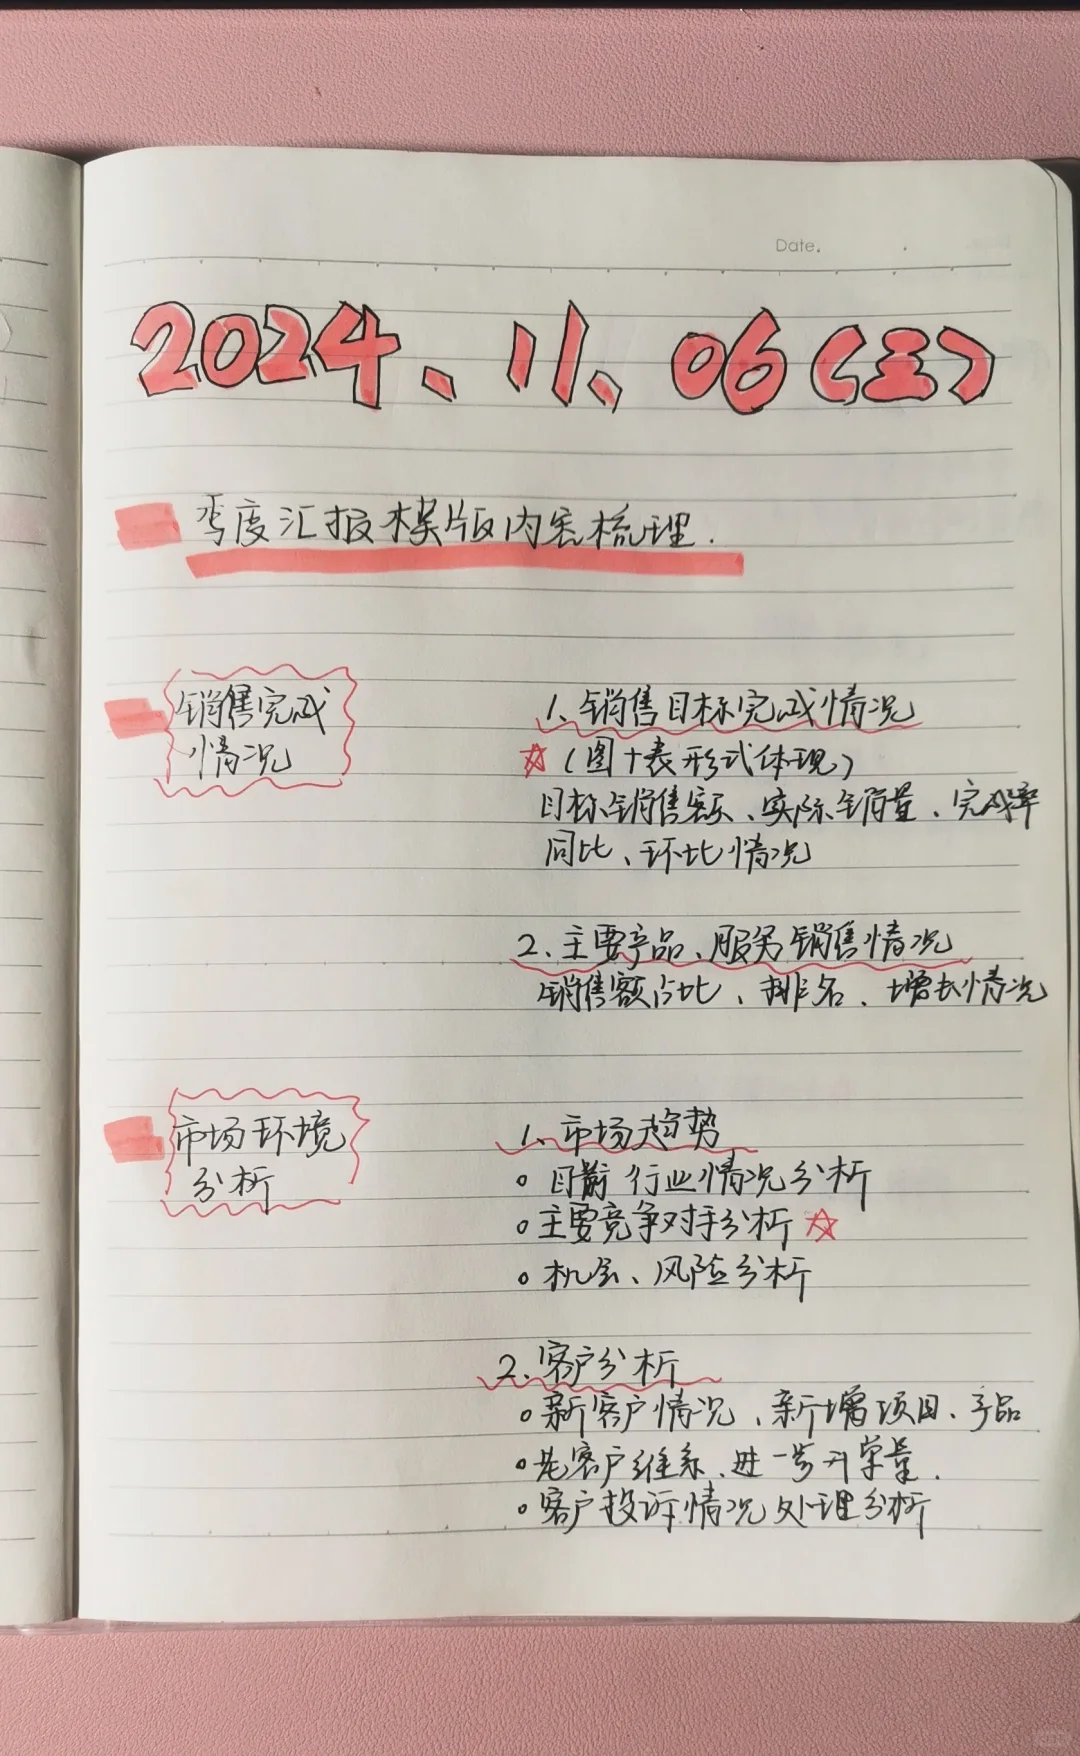 Date.
2024、11、06(三)
季度汇报模版内容梳理.
销售完成
情况
1、销售目标完成情况
☆(图+表形式体现)
目标销售额、实际销量、完成率
同比、环比情况
2、主要产品、服务销售情况
销售额占比、排名、增长情况
市场环境
分析
1、市场趋势
○ 目前行业情况分析
○ 主要竞争对手分析 ☆
○ 机会、风险分析
2、客户分析
○ 新客户情况、新增项目、产品
○ 老客户维系、进一步升单量.
○ 客户投诉情况处理分析